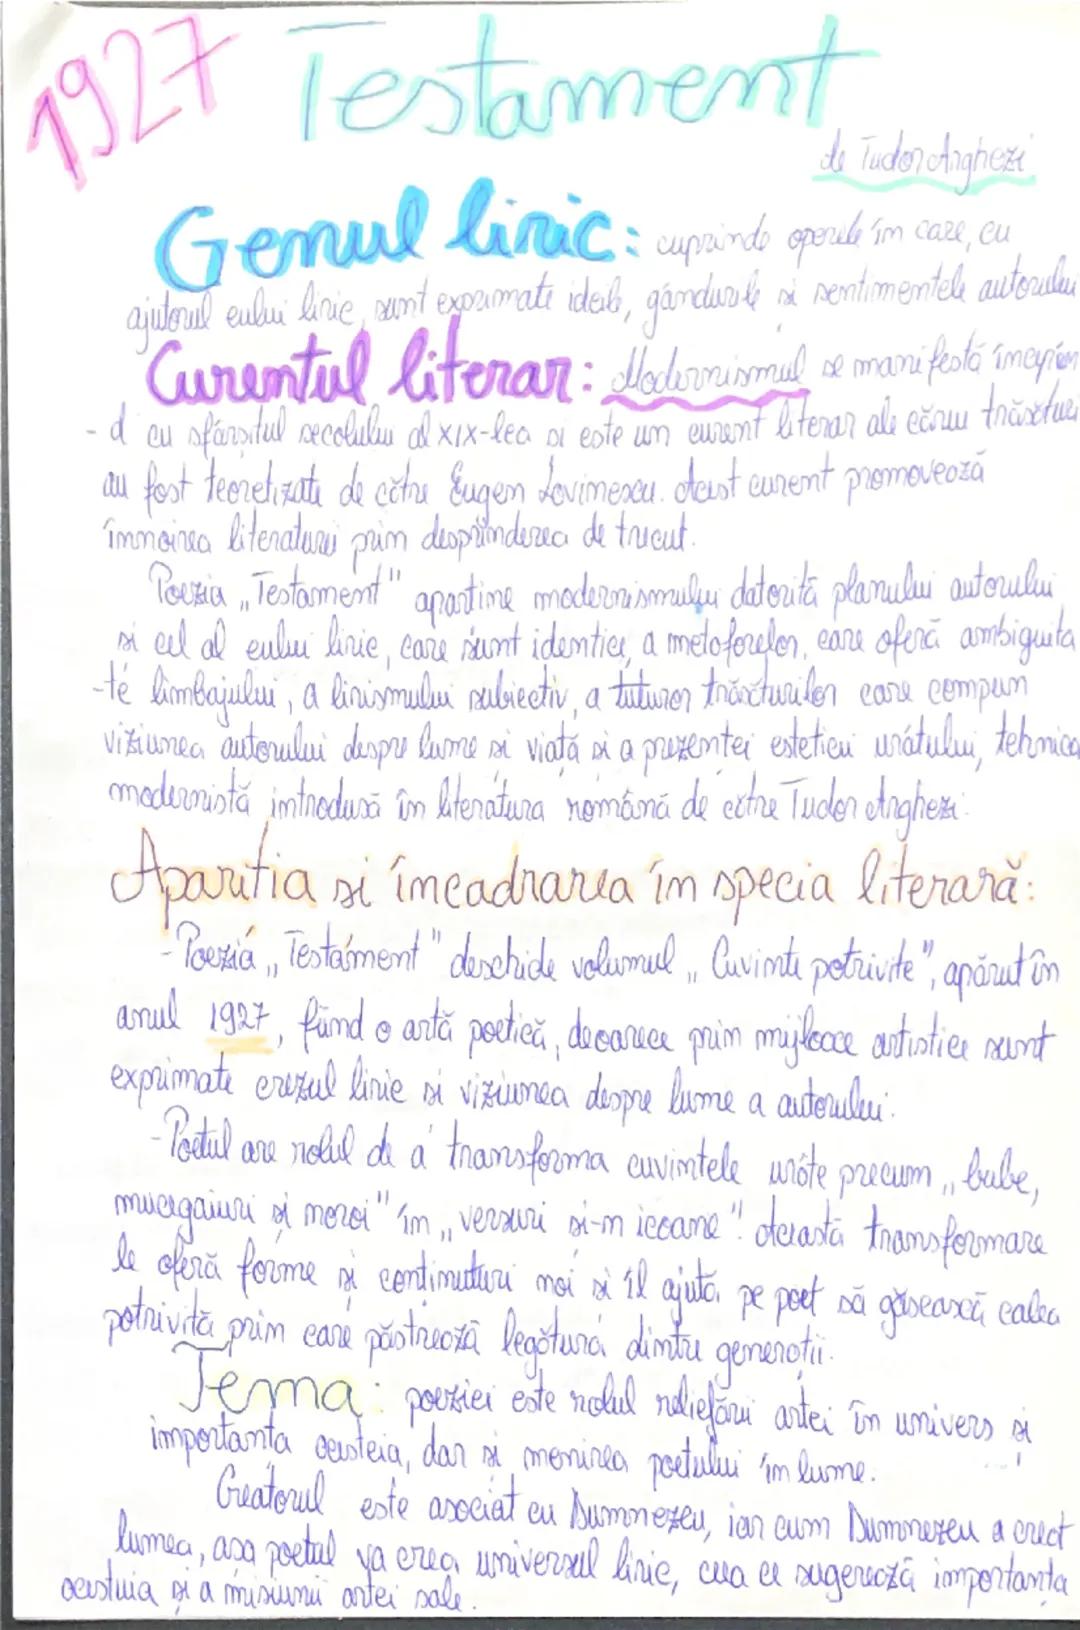 1927 Testament
de Tudor Arghezi
Genul liric: cuprinde operele în care, cu
ajutorul eului liric, sunt exprimate ideile, gândurile si sentimentele autorului
Curentul literar: Modernismul se manifestă începân
-d cu sfârsitul secolului al XIX-lea si este un curent literar ale cărui trăsături
au fost teoretizate de către Eugen Lovinescu. Acest curent promovează
înnoirea literaturii prin desprinderea de trecut.
Poezia „Testament" apartine modernismului datorită planului autorului
si cel al eului liric, care sunt identice, a metaforelor, care oferă ambiguita
-te limbajului, a lirismului subiectiv, a tuturor trăsăturilor care compun
viziunea autorului despre lume si viață si a prezentei esteticii urâtului, tehnica
modernistă introdusă în literatura română de către Tudor Arghezi.
Aparitia si încadrarea în specia literară:
- Poezia „Testament" deschide volumul „Cuvinte potrivite", apărut în
anul 1927, fiind o artă poetică, deoarece prin mijloace artistice sunt
exprimate crezul liric si viziunea despre lume a autorului.
- Poetul are rolul de a transforma cuvintele urâte precum „bube,
mucegaiuri și noroi" în „versuri si-n icoane". Această transformare
le oferă forme și continuturi noi si îl ajută pe poet să găsească calea
potrivită prin care păstrează legătura dintre generatii.
Tema: poeziei este rolul reliefării artei în univers si
importanța acesteia, dar si menirea poetului în lume.
Creatorul este asociat cu Dumnezeu, iar cum Dumnezeu a creat
lumea, asa poetul va crea universul liric, ceea ce sugerează importanta
acestuia și a misiunii artei sale.